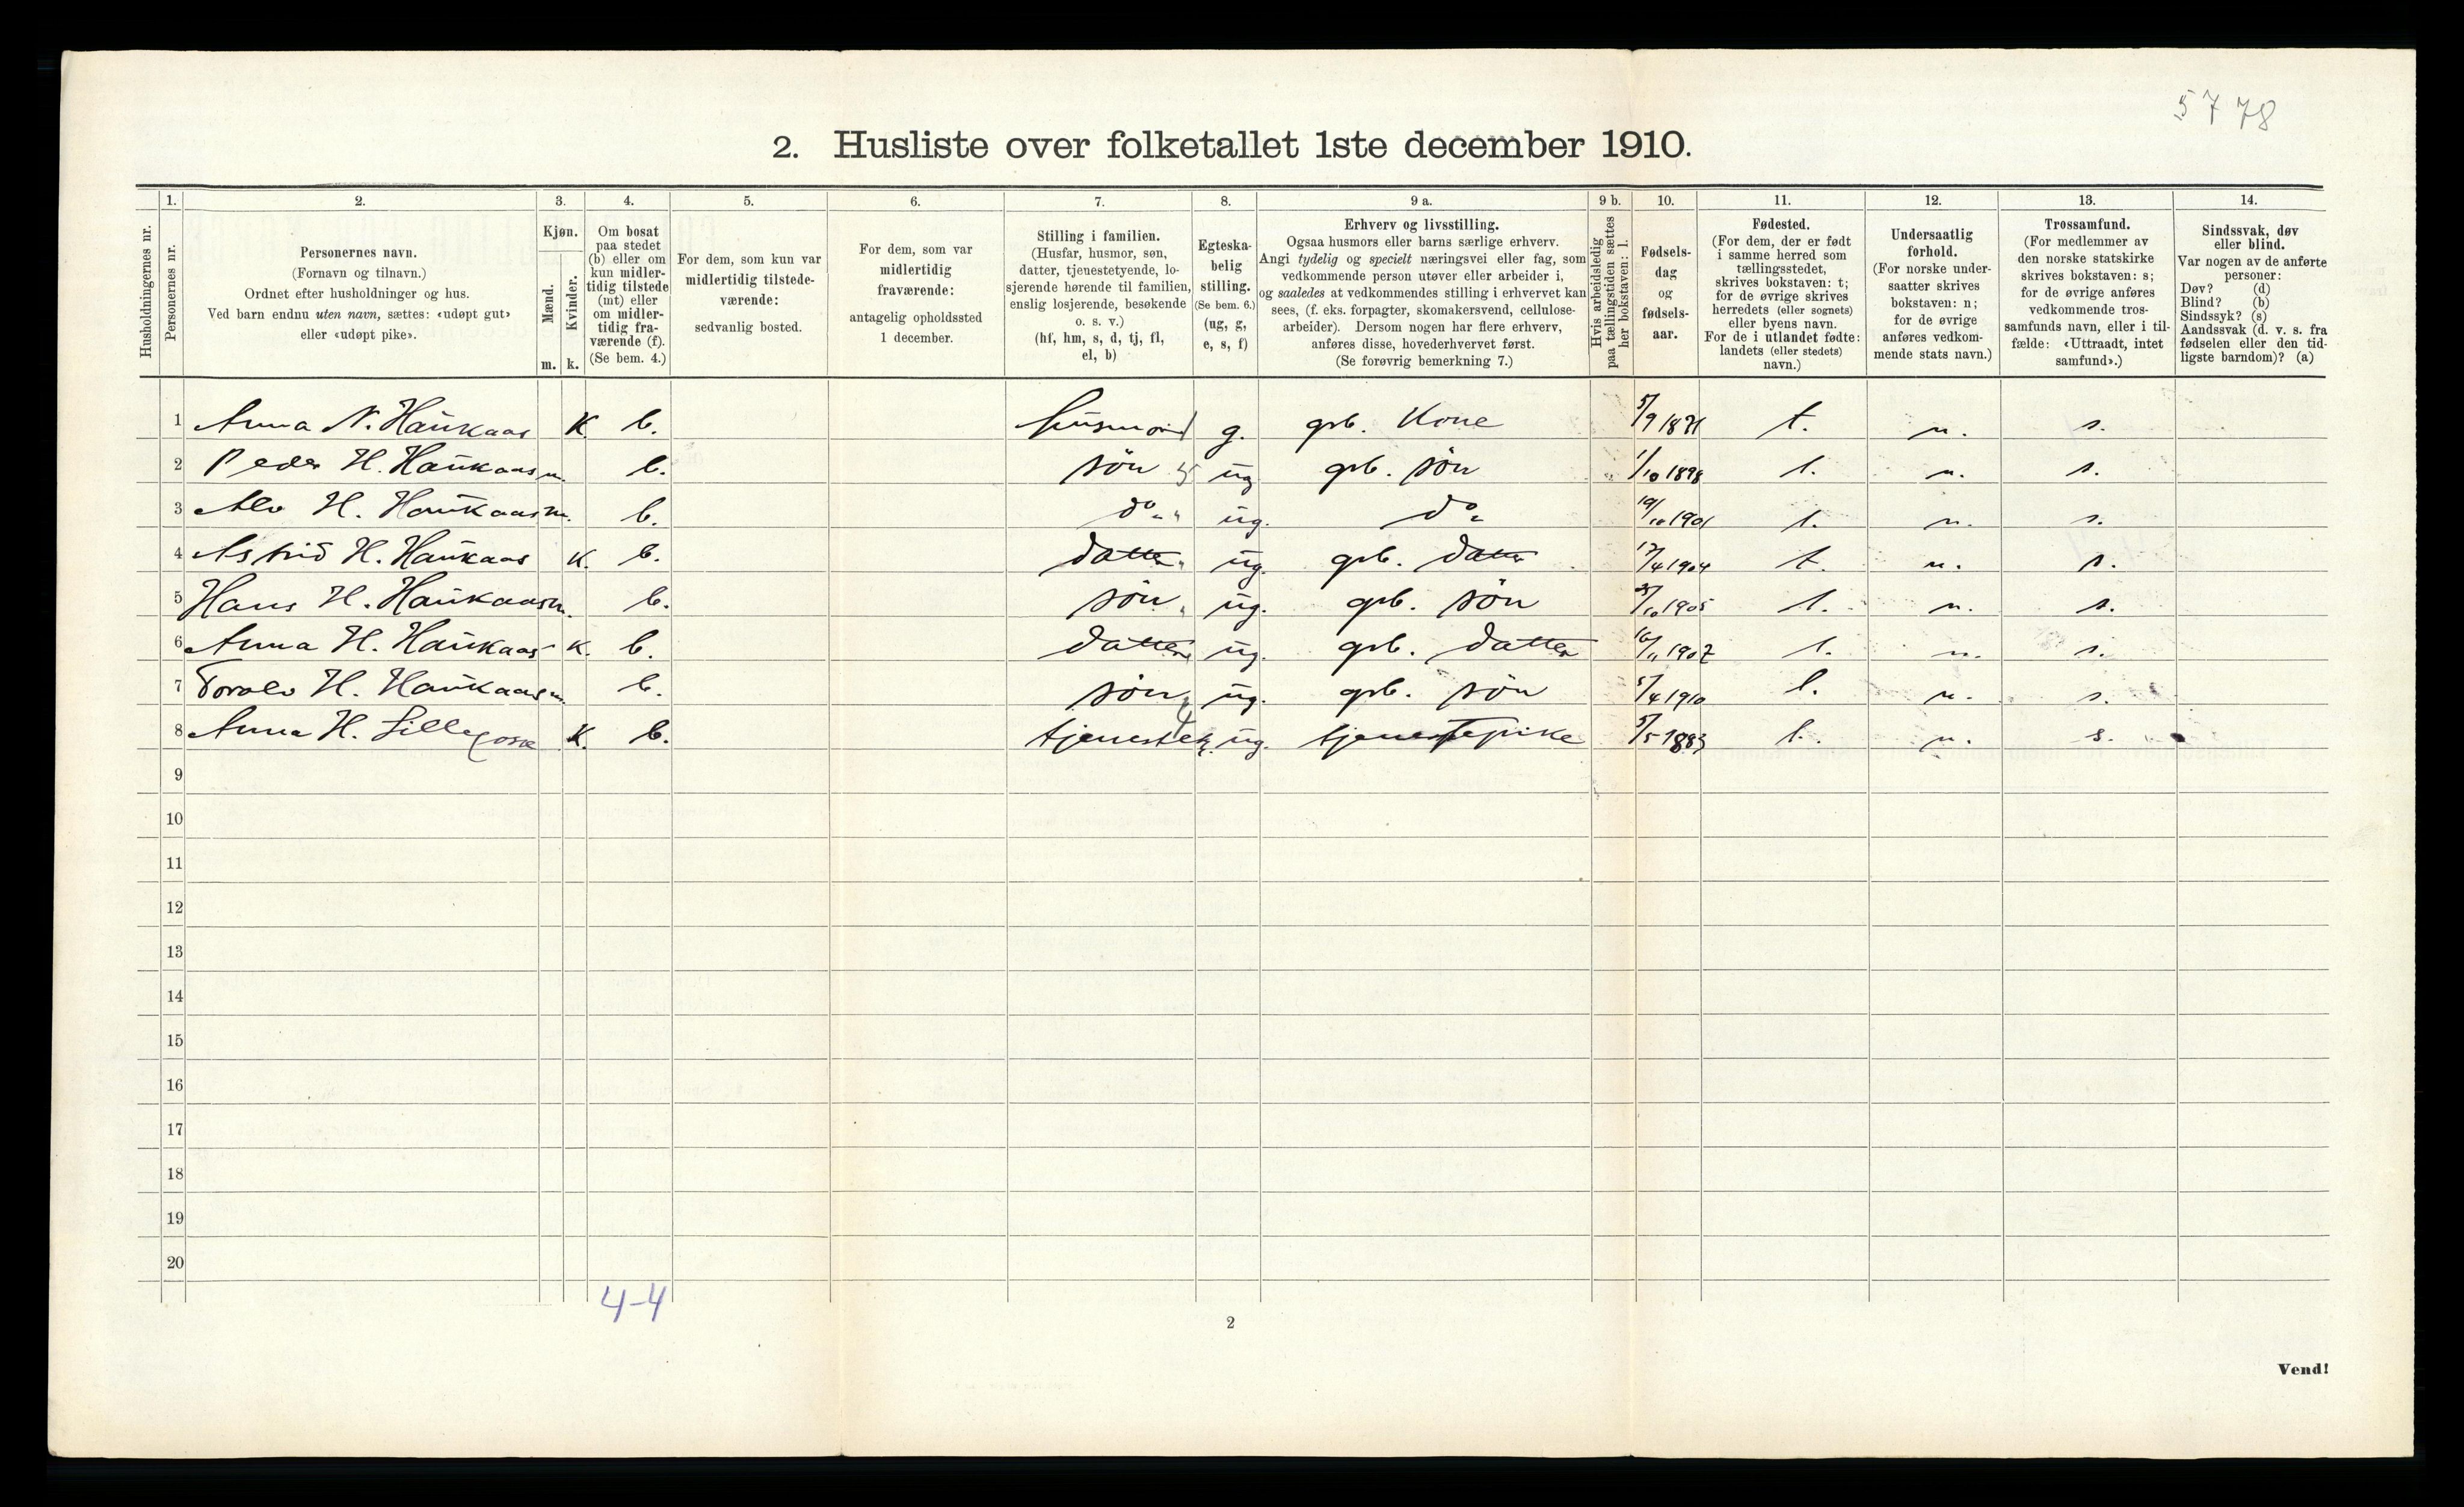 5778
2. Husliste over folketallet 1ste december 1910.
1. 2. 3. 4. 5. 6. 7. 8. 9 a. 9 b. 10. 11. 12. 13. 14.
Husholdningernes nr.
Personernes nr.
Personernes navn.
(Fornavn og tilnavn.)
Ordnet efter husholdninger og hus.
Ved barn endnu uten navn, sættes: «udøpt gut»
eller «udøpt pike».
Kjøn.
Mænd.
Kvinder.
m. k.
Om bosat
paa stedet
(b) eller om
kun midler-
tidig tilstede
(mt) eller
om midler-
tidig fra-
værende (f).
(Se bem. 4.)
For dem, som kun var
midlertidig tilstede-
værende:
sedvanlig bosted.
For dem, som var
midlertidig
fraværende:
antagelig opholdssted
1 december.
Stilling i familien.
(Husfar, husmor, søn,
datter, tjenestetyende, lo-
sjerende hørende til familien,
enslig losjerende, besøkende
o. s. v.)
(hf, hm, s, d, tj, fl,
el, b)
Egteska-
belig
stilling.
(Se bem. 6.)
(ug, g,
e, s, f)
Erhverv og livsstilling.
Ogsaa husmors eller barns særlige erhverv.
Angi tydelig og specielt næringsvei eller fag, som
vedkommende person utøver eller arbeider i,
og saaledes at vedkommendes stilling i erhvervet kan
sees, (f. eks. forpagter, skomakersvend, cellulose-
arbeider). Dersom nogen har flere erhverv,
anføres disse, hovederhvervet først.
(Se forøvrig bemerkning 7.)
Hvis arbeidsledig
paa tællingstiden sættes
her bokstaven: l.
Fødsels-
dag
og
fødsels-
aar.
Fødested.
(For dem, der er født
i samme herred som
tællingsstedet,
skrives bokstaven: t;
for de øvrige skrives
herredets (eller sognets)
eller byens navn.
For de i utlandet fødte:
landets (eller stedets)
navn.)
Undersaatlig
forhold.
(For norske under-
saatter skrives
bokstaven: n;
for de øvrige
anføres vedkom-
mende stats navn.)
Trossamfund.
(For medlemmer av
den norske statskirke
skrives bokstaven: s;
for de øvrige anføres
vedkommende tros-
samfunds navn, eller i til-
fælde: «Uttraadt, intet
samfund».)
Sindssvak, døv
eller blind.
Var nogen av de anførte
personer:
Døv? (d)
Blind? (b)
Sindssyk? (s)
Aandssvak (d. v. s. fra
fødselen eller den tid-
ligste barndom)? (a)
1 Anna N. Haukaas K. b. husmor g. grb. Kone 5/9 1871 t. n. s.
2 Peder H. Haukaas m. b. sön ug grb. sön 1/10 1898 t. n. s.
3 Alv H. Haukaas m. b. do ug. do 19/10 1901 t. n. s.
4 Astrid H. Haukaas K. b. datter ug. grb. datter 17/4 1904 t. n. s.
5 Hans H. Haukaas m. b. sön ug. grb. sön /10 1905 t. n. s.
6 Anna H. Haukaas K. b. datter ug. grb. datter 16/11 1907 t. n. s.
7 Toralv H. Haukaas m. b. sön ug. grb. sön /4 1910 t. n. s.
8 Anna H. K. b. ug. tjenestepike 5/5 1883 t. n. s.
9
10
11
12
13
14
15
16
17
18
19
20
4-4
2
Vend!